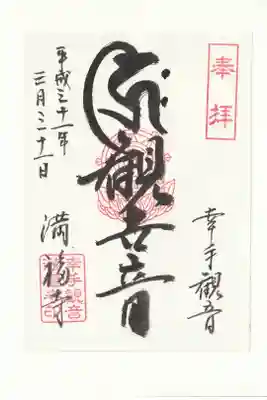 奉拝
幸手観音
觀世音
平成三十一年
三月三十一日
満福寺
幸手観音